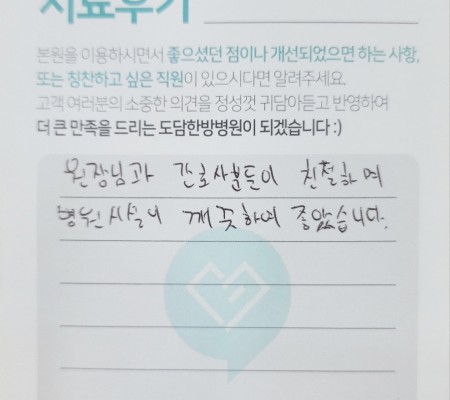 치료후기
본원을 이용하시면서 좋으셨던 점이나 개선되었으면 하는 사항,
또는 칭찬하고 싶은 직원이 있으시다면 알려주세요.
고객 여러분의 소중한 의견을 정성껏 귀담아듣고 반영하여
더 큰 만족을 드리는 도담한방병원이 되겠습니다 :)
원장님과 간호사분들이 친절하며
병원 시설이 깨끗하여 좋았습니다.